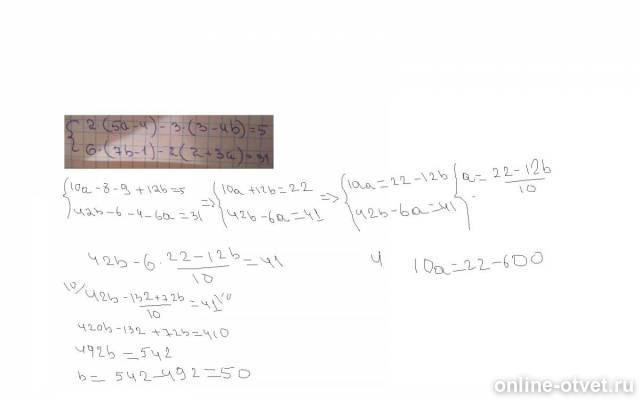 2·(5a-4)-3·(3-4b)=5
6·(7b-1)-2(2+3a)=31
10a-8-9+12b=5 => 10a+12b=22 => 10a=22-12b a=22-12b/10
42b-6-4-6a=31 42b-6a=41 42b-6a=41
42b-6·22-12b/10=41
4 10a=22-600
10/42b-132+72b/10=41\10
420b-132+72b=410
492b=542
b=542-492=50
online-otvet.ru